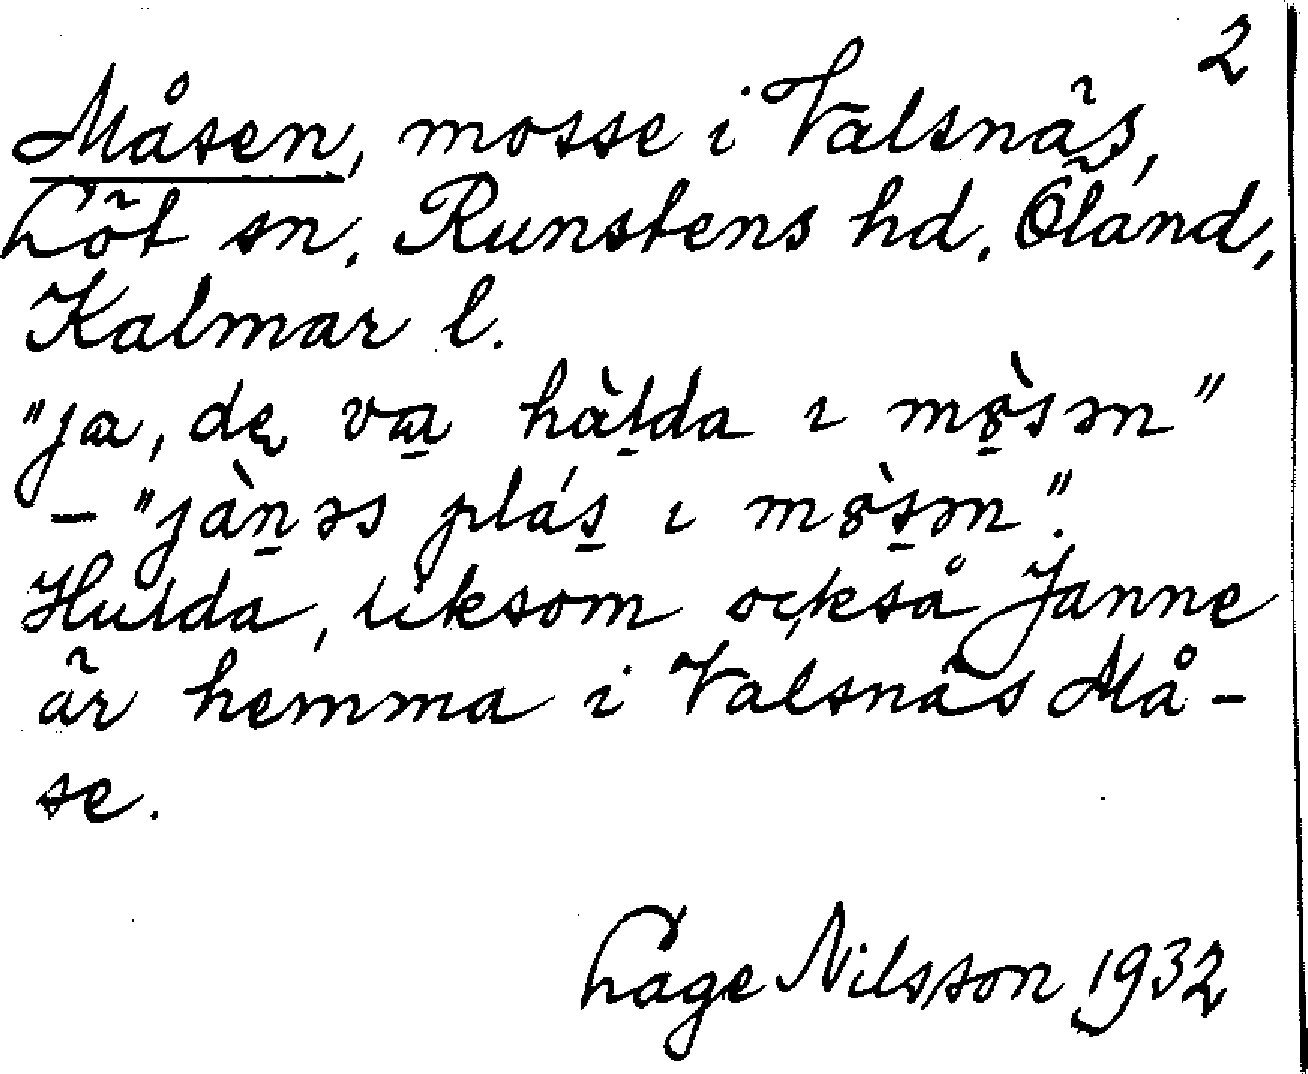 2
Måsen, mosse i Valsnäs,
Löt sn, Runstens hd, Öland,
Kalmar l.
"ja, de va hàlda ı mɵ̀sən"
– "jànəs plás ı mɵ̀sən".
Hulda, liksom också Janne
är hemma i Valsnäs Må-
se.
Lage Nilsson 1932